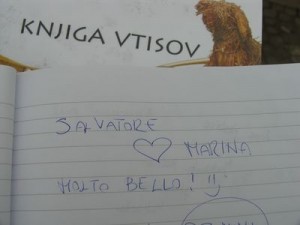 KNJIGA VTISOV
SALVATORE
MARINA
MOLTO BELLO!